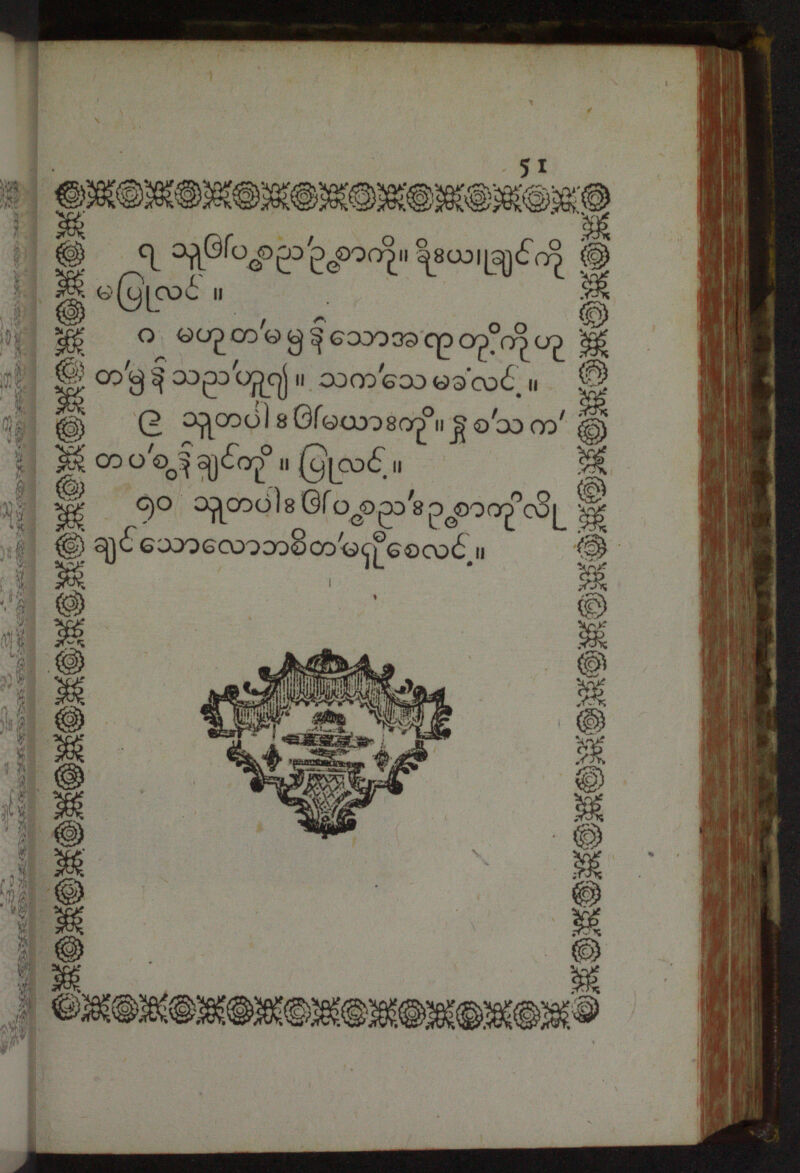 51
၇ သူ၏ပစ္စည်ဥစ္စာကို။ ခိုးယူချင်ကို
မပြုလင်။
၈ မဟုတ်မမှန်သောအရာတို့ကိုဟု
တ်မှန်သည်ဟူ၍။ သက်သေမခံလင့်။
၉ သူတပါး၏မယားကို။ နှစ်သက်
တပ်စွန်ချင်ကို။ ပြုလင့်။
၁၀ သူတပါး၏ပစ္စည်းဥစ္စာကိုလို
ချင်သောလောဘစိတ်မရှိစေလင့်။